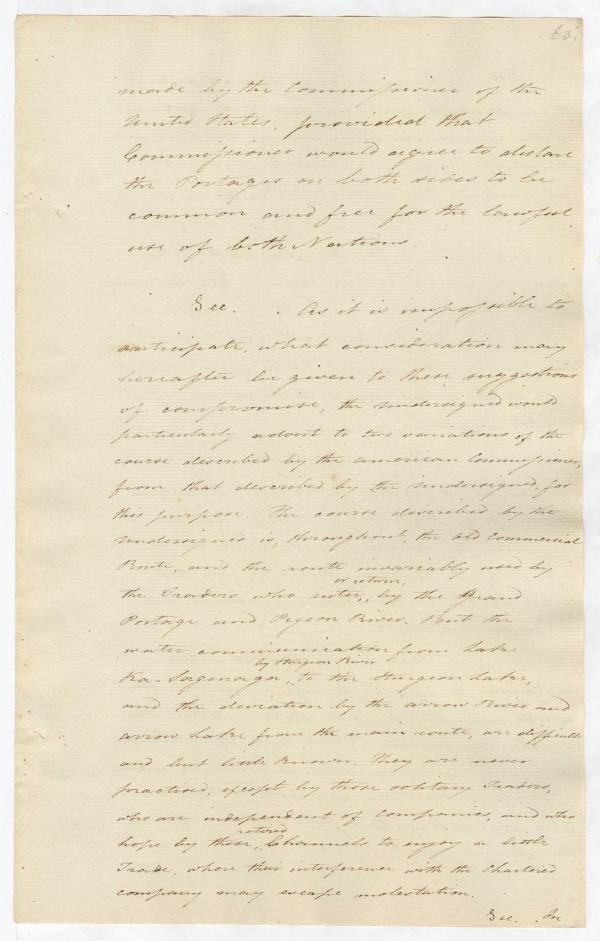 63.
made by the Commissioner of the
United States, provided that
Commissioner would agree to declare
the Portages on both sides to be
common and free for the lawful
use of both Nations.
Sec. . As it is impossible to
anticipate, what consideration may
hereafter be given to these suggestions
of compromise, the undersigned would
particularly advert to two variations of the
course described by the american Commissioner,
from that described by the undersigned, for
this purpose. The course described by the
undersigned is, throughout, the old commercial
Route, and the route invariably used by
or return,
the Traders who enter, by the Grand
Portage and Pigeon River. But the
water communication from Lake
by Sturgeon River
Ka-Saganaga, to the Sturgeon Lake,
and the deviation by the arrow River and
arrow Lake from the main route, are difficult
and but little known. They are never
practised, except by those solitary Traders,
who are independent of companies, and who
retired
hope by those, Channels to enjoy a little
Trade, where their interference with the Chartered
company may escape molestation.
Sec. In